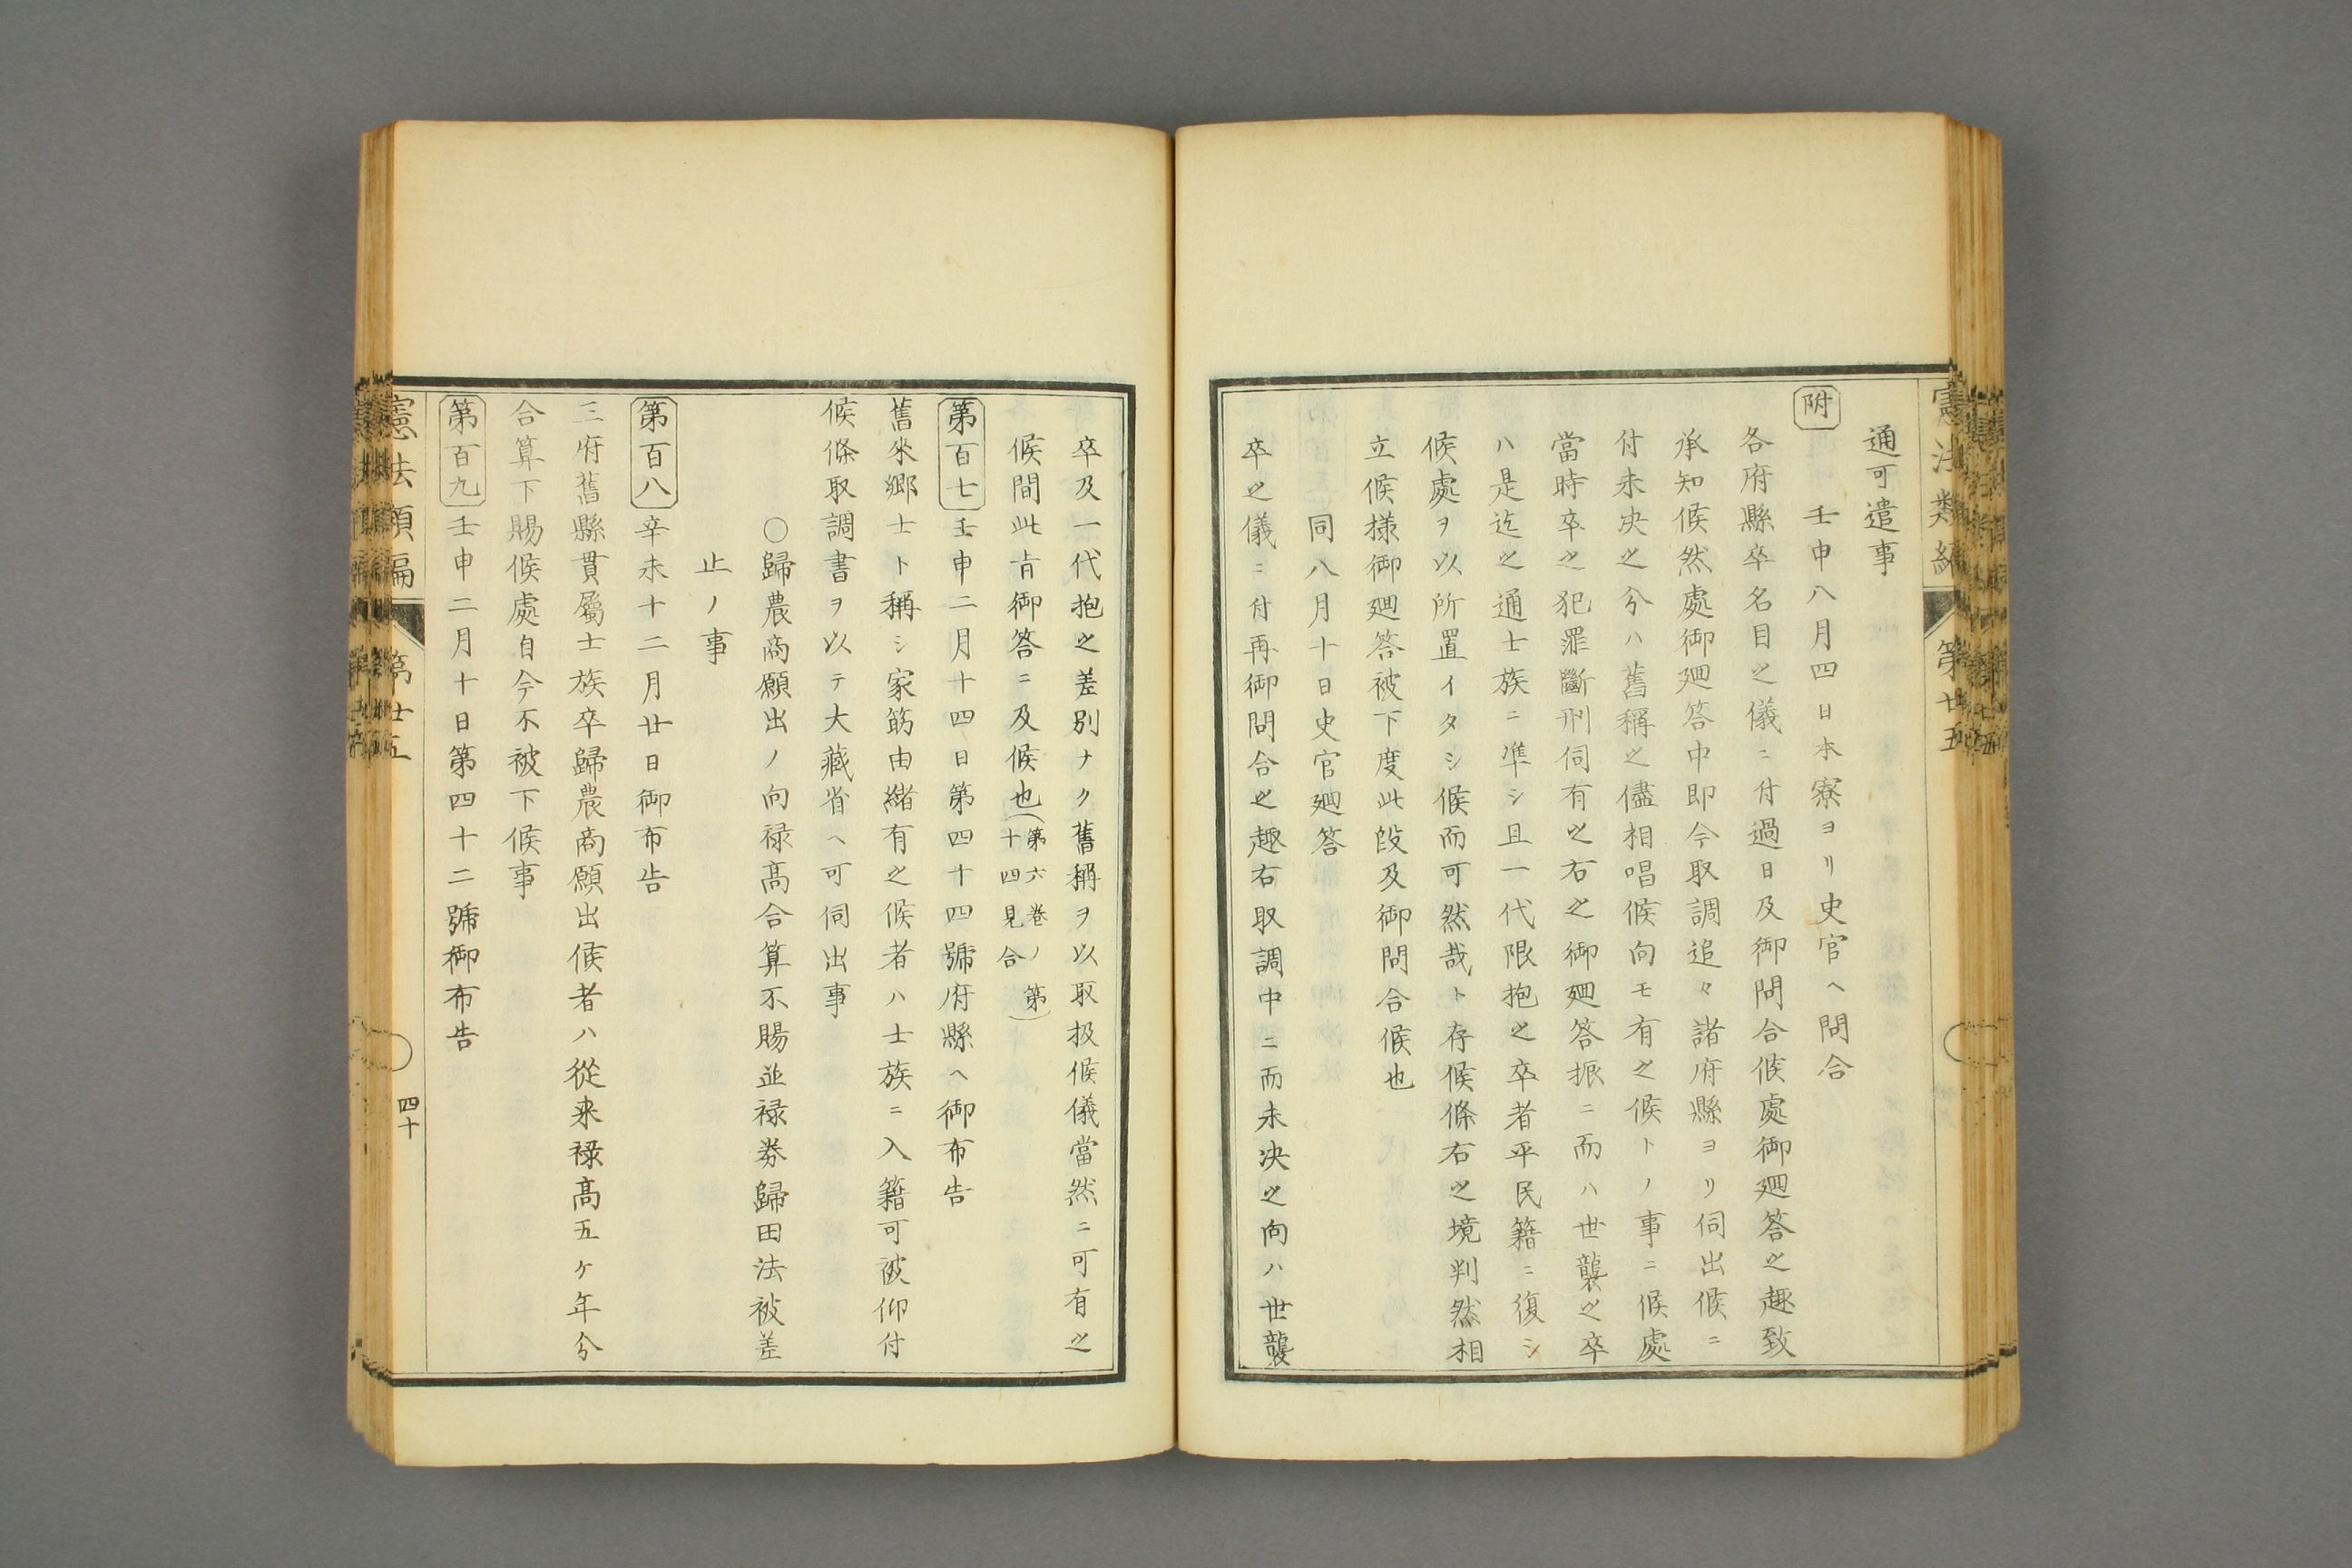 憲法類編 第廿五
通可遣事
附
壬申八月四日本寮ヨリ史官ヘ問合
各府縣卒名目之儀ニ付過日及御問合候處御廻答之趣致
承知候然處御廻答中即今取調追々諸府縣ヨリ伺出候ニ
付未决之分ハ舊稱之儘相唱候向モ有之候トノ事ニ候處
當時卒之犯罪斷刑伺有之右之御廻答振ニ而ハ世襲之卒
ハ是迄之通士族ニ凖シ且一代限抱之卒者平民籍ニ復シ
候處ヲ以所置イタシ候而可然哉ト存候條右之境判然相
立候樣御廻答被下度此段及御問合候也
同八月十日史官廻答
卒之儀ニ付再御問合之趣右取調中ニ而未决之向ハ世襲
卒及一代抱之差別ナク舊稱ヲ以取扱候儀當然ニ可有之
候間此旨御答ニ及候也(第六卷ノ第
十四見合)
第百七 壬申二月十四日第四十四號府縣ヘ御布告
舊來郷士ト稱シ家筋由緒有之候者ハ士族ニ入籍可被仰付
候條取調書ヲ以テ大藏省ヘ可伺出事
〇歸農商願出ノ向祿高合算不賜並祿券歸田法被差
止ノ事
第百八 辛未十二月廿日御布告
三府舊縣貫屬士族卒歸農商願出候者ハ從来祿高五ケ年分
合算下賜候處自今不被下候事
第百九 壬申二月十日第四十二號御布告
憲法類編 第廿五 四十